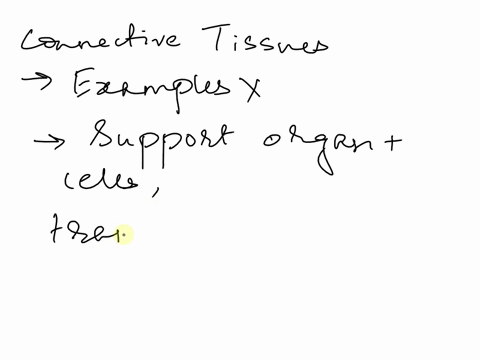 Connective Tissues
→ Examples X
→ Support organ +
cells,
tran